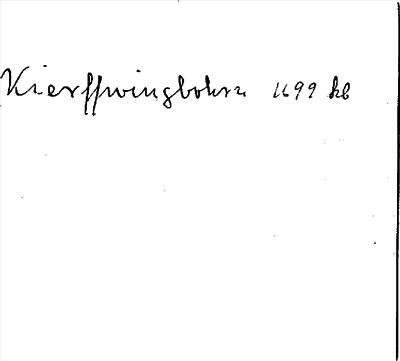 Kierffwingbohrn 1699 kb